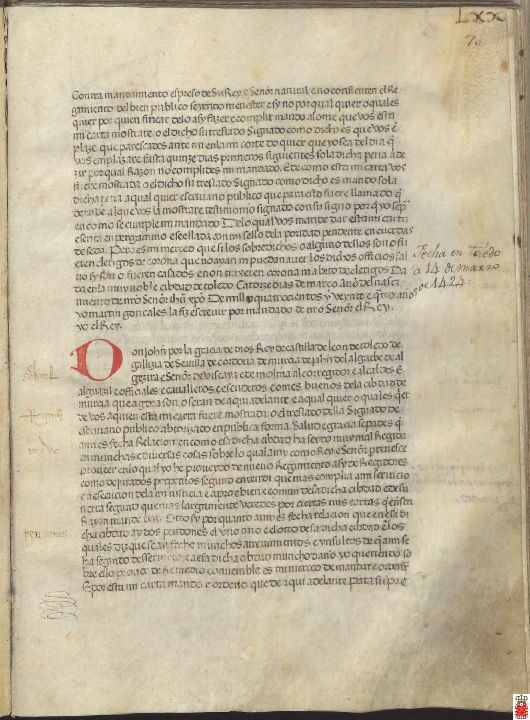 LXX
70
Contra mandamiento espreso de Su Rey e Señor natural e no consienten el Re
gimiento del bien publico seyendo menester e sy no por qual quier o quales
quier por quien fincare delo asy fazer e complir mando al ome que vos esta
mi carta mostrare o el dicho su treslado Signado como dicho es que vos en
plaze que parescades ante mi enla mi corte do quier que yo sea del dia que
vos enplazare fasta quinze dias primeros siguientes sola dicha pena a de
zir por qual Razon no complides mi mandado E de como esta mi carta vos
fuere mostrada o el dicho su treslado Signado como dicho es mando sola
dicha pena a qual quier escriuano publico que para esto fuere llamado que
de ende al que vos la mostrare testimonio signado con su signo por que yo sepa
en como se cumple mi mandado Delo qual vos mande dar esta mi carta
escrita en pergamino e sellada con mi sello dela poridad pendente en cuerdas
de seda Pero es mi merced que si los sobredichos o alguno dellos son o fu
eren clerigos de corona que no ayan ni puedan auer los dichos officios sal
uo sy son o fueren casados e non traxeren corona ni abito de clerigos Da
da enla muy noble cibdad de toledo Catorze dias de março año del nasci
miento de nro Señor ihu xpo De mill e quatrocientos y veynte e quatro años
yo martin gonçales la fiz escreuir por mandado de nro Señor el Rey
yo el Rey
Fecha en Toledo
a 14 de marzo
de 1424
Don Johan por la gracia de dios Rey de castilla de leon de toledo de
galizia de Seuilla de cordoua de murcia de jahen del algarbe de al
gezira e Señor de Viscaya e de molina al corregidor e alcaldes E
alguazil e officiales e caualleros e escuderos e omes buenos dela cibdad de
murcia que agora son o seran de aqui adelante e a qual quier o quales quier
de vos a quien esta mi carta fuere mostrada o el treslado della Signado de
escriuano publico abtorizado en publica forma Salud e gracia sepades que
ami es fecha Relacion en como esa dicha cibdad ha seydo muy mal Regida
en munchas e diuersas cosas sobre lo qual amy como Rey e Señor pertenesce
proueer enlo qual yo he proueydo de nueuo Regimiento asy de Regidores
como de jurados segund entendi que mas complia ami seruicio
e a execucion dela mi justicia e a pro e bien comun desa dicha cibdad e de su
tierra segund que mas largamente veredes por ciertas mis cartas que en esta
Razon mande dar Otrosy por quanto amy es fecha relacion que en esa di
cha cibdad ay dos pendones el vno mio e el otro desa dicha cibdad e los
quales diz que se an fecho munchos ayuntamientos e ynsultos de que ami se
ha seguido desseruicio e a esa dicha cibdad muncho daño yo queriendo so
bre ello proueer de Remedio conuenible es mi merced de mandar e ordenar
E por esta mi carta mando e ordeno que de aqui adelante para sienpre
pendones